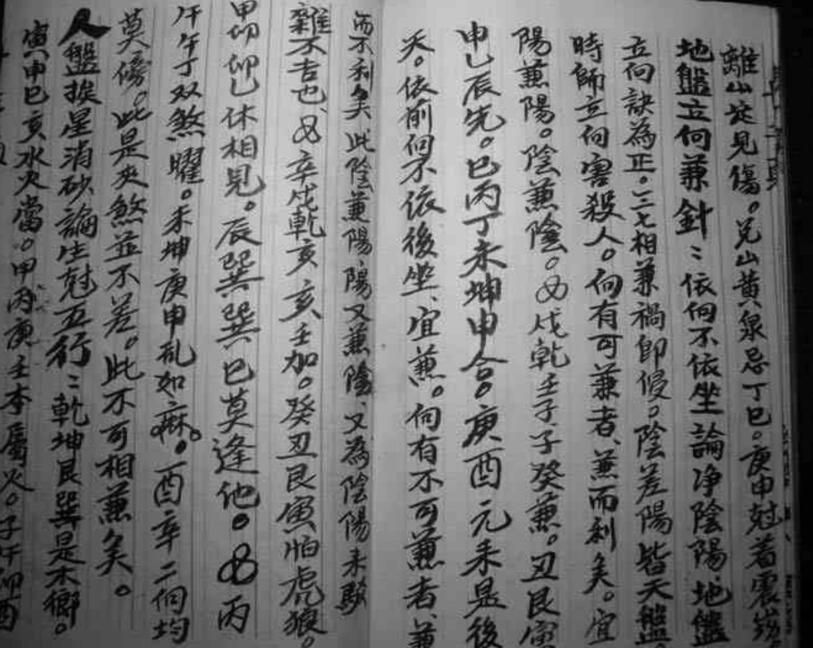 離山定見傷。兌山黃泉忌丁巳。庚申尅着震
地盤立向兼針：依向不依坐論净陰陽、地盤
立向訣為正。三七相兼禍即侵。陰差陽皆天盤。
時師立向害殺人。向有可兼者、兼而利矣。宜
陽兼陽。陰兼陰。戌乾壬子子癸兼。丑艮寅
申乙辰先。巳丙丁未坤申合。庚酉元來是後
天。依前向不依後坐、宜兼。向有不可兼者、兼
而不利矣此陰兼陽、陽又兼陰、又為陰陽未駁
雜不吉也、辛戌乾亥亥壬加。癸丑艮寅怕虎狼。
甲卯卯乙休相見。辰巽巽巳莫逢他。丙
午午丁双煞曜。未坤庚申乱如麻。酉辛二向均
莫傍。此是夾煞並不差。此不可相兼矣。
人盤挨星消砂論生尅五行：乾坤艮巽是木鄉。
寅申巳亥水火當。甲丙庚壬本屬火。子午卯酉